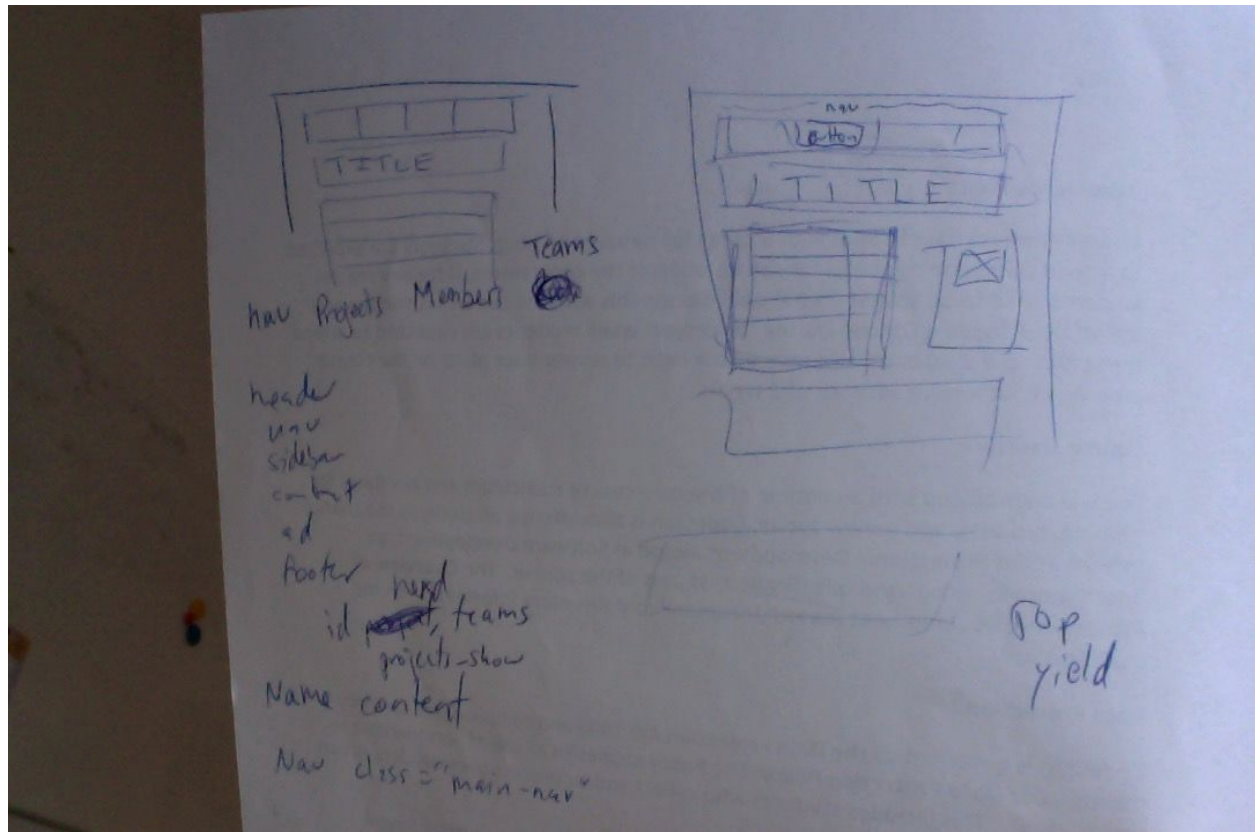 TITLE
Teams
nav Projects Members
header
nav
sidebar
content
ad
footer
id nerd, teams
projects-show
Name content
Nav class="main-nav"
nav
button
TITLE
Top
yield